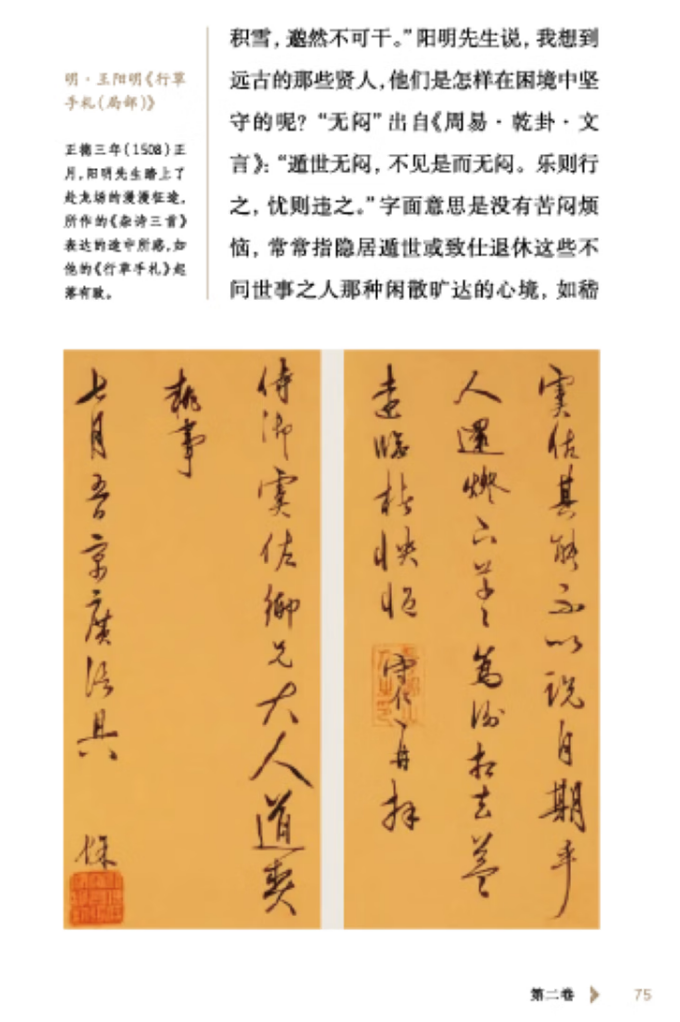 积雪，邈然不可干。”阳明先生说，我想到
远古的那些贤人，他们是怎样在困境中坚
守的呢？“无闷”出自《周易·乾卦·文
言》：“遁世无闷，不见是而无闷。乐则行
之，忧则违之。”字面意思是没有苦闷烦
恼，常常指隐居遁世或致仕退休这些不
问世事之人那种闲散旷达的心境，如嵇
明·王阳明《行草
手札(局部)》
正德三年(1508)正
月，阳明先生踏上了
赴龙场的漫漫征途，
所作的《杂诗三首》
表达的途中所路，如
他的《行草手札》起
落有致。
虞佐其能不以說自期乎
人還燈下草草為謝相去益
遠臨楮怏悒 守仁再拜
侍御虞佐鄉兄大人道契
執事
七月
第二卷 75